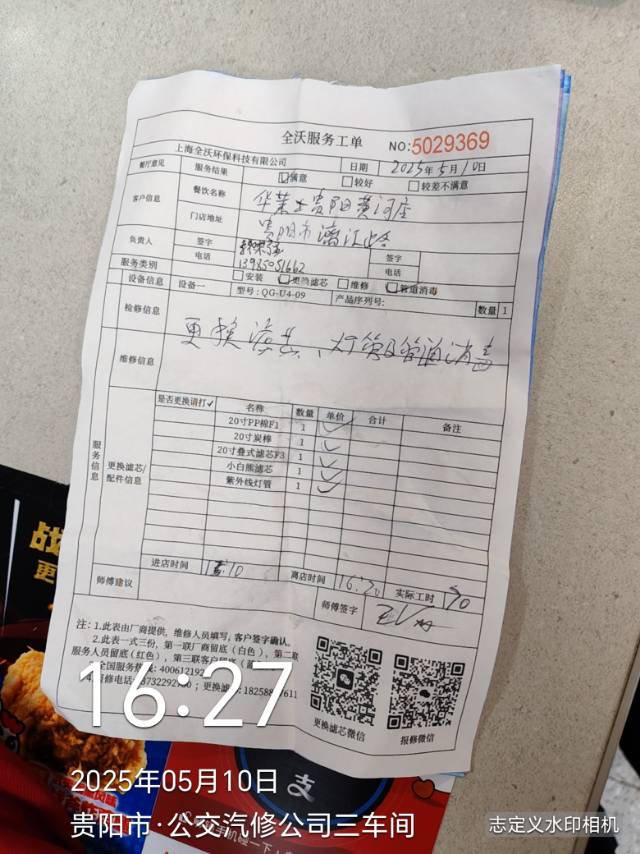 全沃服务工单 NO:5029369
上海全沃环保科技有限公司 日期 2025年5月10日
餐厅意见 服务结果 ☑满意 □较好 □较差不满意
客户信息 餐饮名称 华莱士贵阳黄河店
门店地址 贵阳市漓江路
负责人 签字 签字
电话 电话
服务类别 □安装 □更换滤芯 □维修 □管道消毒
设备信息 设备一 型号: QG-U4-09 产品序列号: 数量 1
检修信息
更换滤芯、灯管及管道消毒
维修信息
服务信息 更换滤芯/配件信息
是否更换请打✓ 名称 数量 单价 合计 备注
20寸PP棉F1 1 ✓
20寸炭棒 1 ✓
20寸叠式滤芯F3 1 ✓
小白熊滤芯 1 ✓
紫外线灯管 1 ✓
进店时间 离店时间 实际工时
师傅建议 师傅签字
注: 1.此表由厂商提供, 维修人员填写, 客户签字确认。
2.此表一式三份, 第一联厂商留底(白色), 第二联
服务人员留底(红色), 第三联客户留底
全国服务热线: 40061219
更换滤芯微信 报修微信
16:27
2025年05月10日
贵阳市·公交汽修公司三车间
志定义水印相机
战
更
支